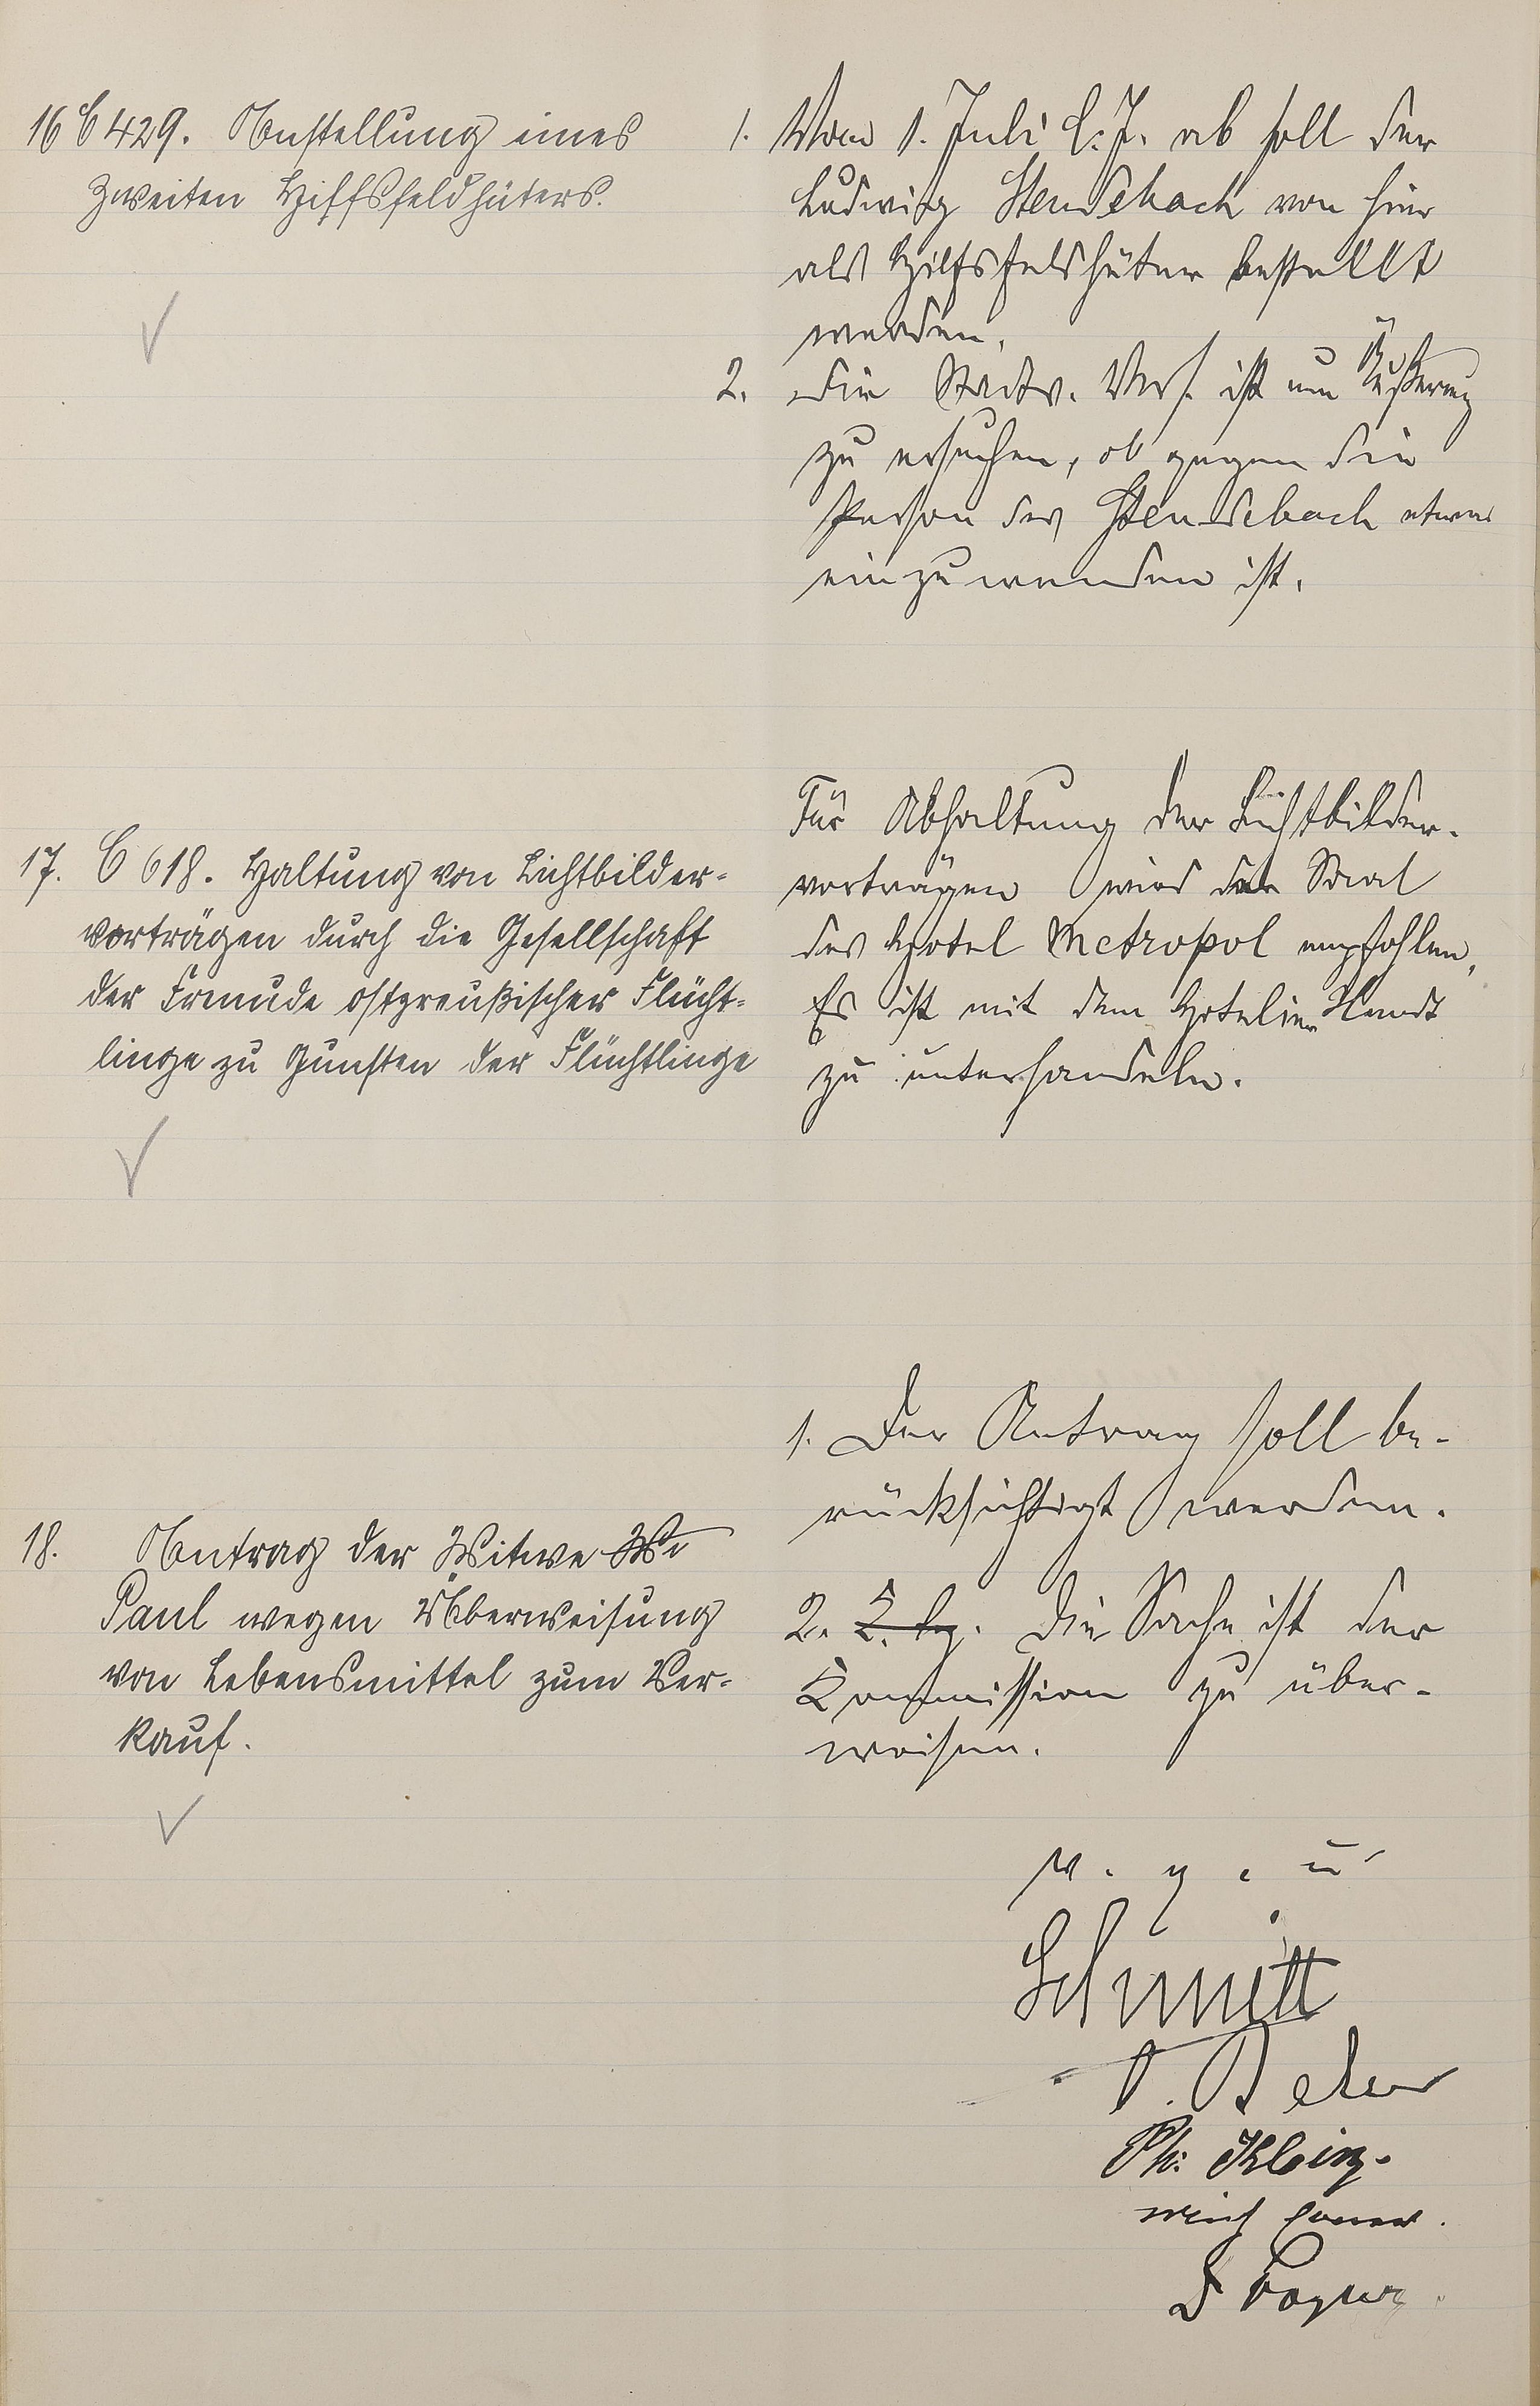 16 C 429. Anstellung eines
zweiten Hilfsfeldhüters.
1. Vom 1. Juli l. J. ab soll der
Ludwig Stendebach von hier
als Hilfsfeldhüter bestellt
werden.
2. Die Stadtv. Vers. ist um Äußerung
zu ersuchen, ob gegen die
Person des Stendebach etwas
einzuwenden ist.
17. C 618. Haltung von Lichtbilder-
vorträgen durch die Gesellschaft
der Freunde ostpreußischer Flücht-
linge zu Gunsten der Flüchtlinge
Für Abhaltung der Lichtbilder-
vorträgen wird der Saal
des Hotel Metropol empfohlen.
Es ist mit dem Hotelier
zu unterhandeln.
18. Antrag der Witwe Wi
Paul wegen Überweisung
von Lebensmittel zum Ver-
kauf.
1. Der Antrag soll be-
rücksichtigt werden.
2. Die Sache ist der
Kommission zu über-
weisen.
v. g. u.
Schmitt
Ph. Klein.